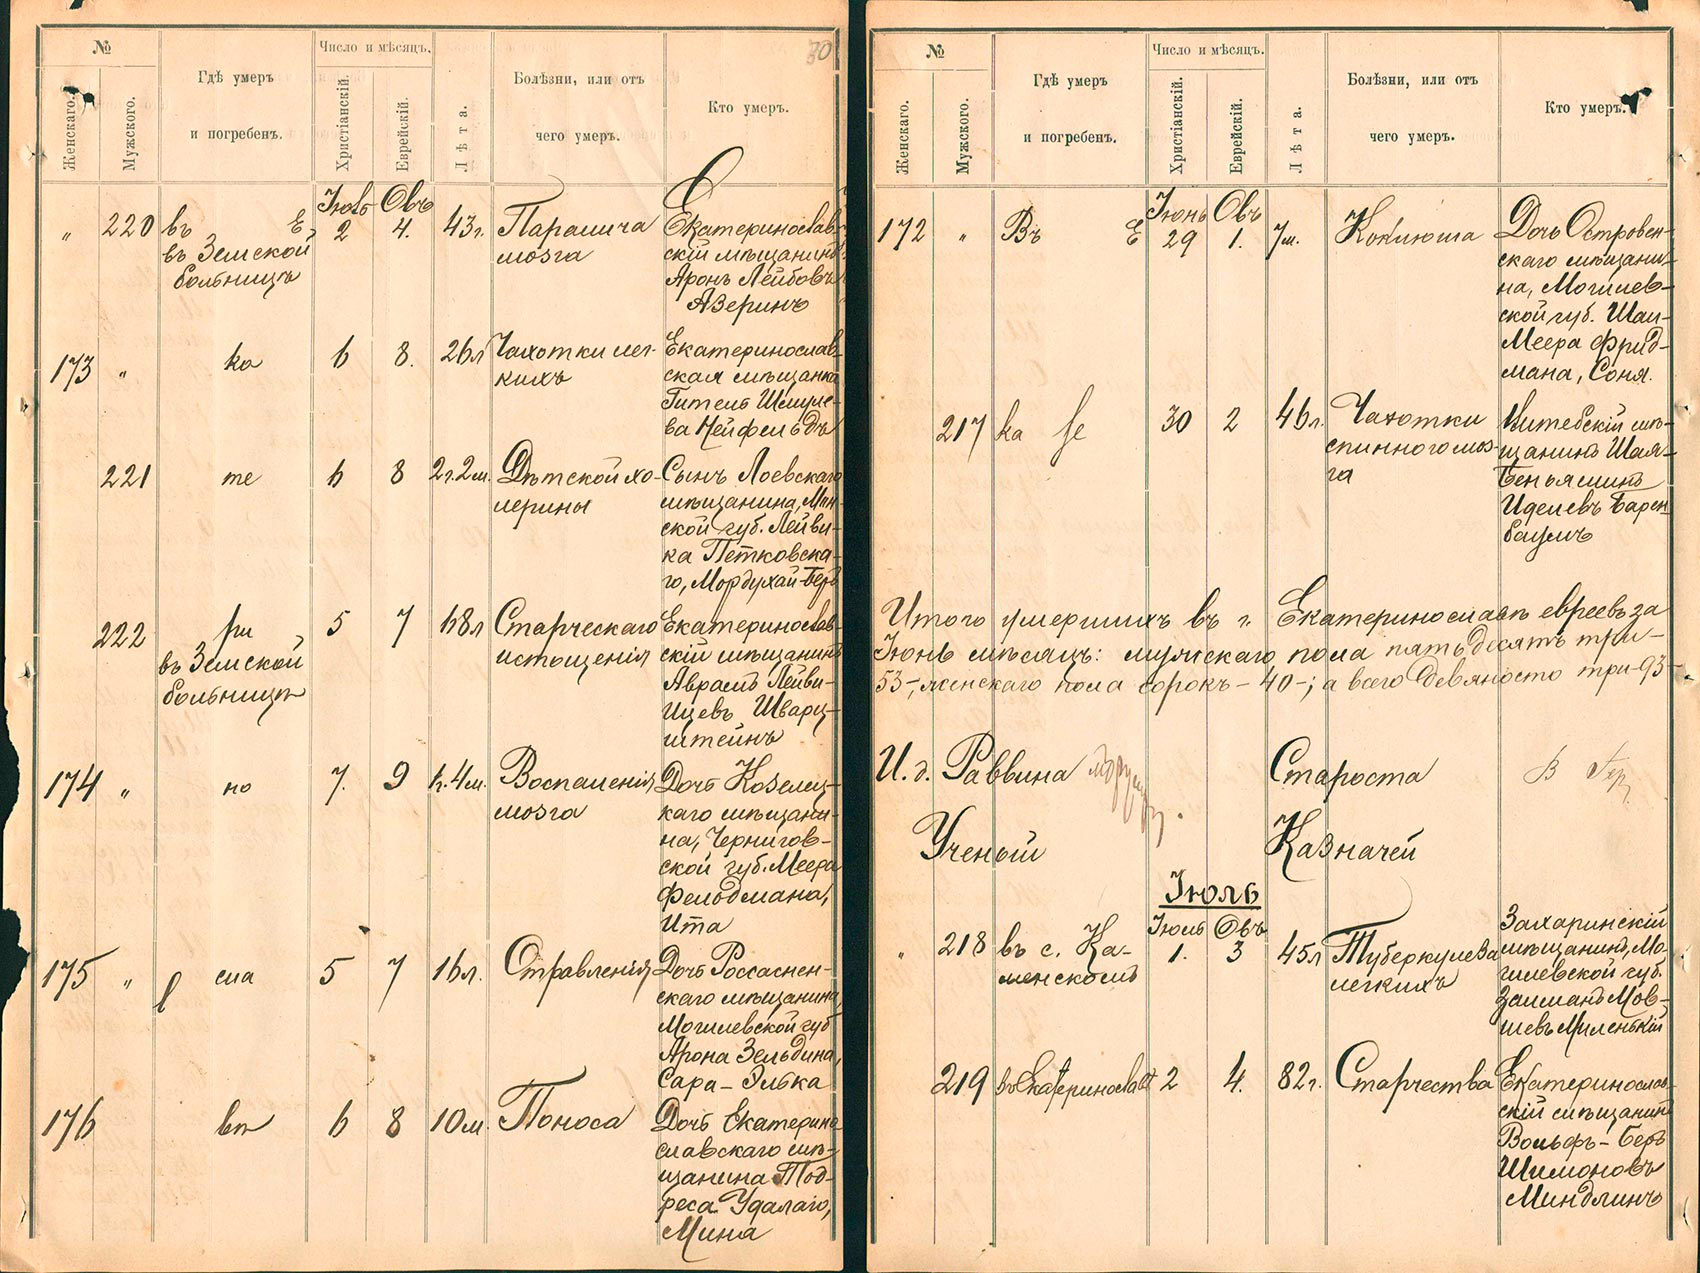 №
Женскаго.
Мужского.
Гдѣ умеръ
и погребенъ.
Число и мѣсяцъ.
Христіанскій.
Еврейскій.
Лѣта.
Болѣзни, или отъ
чего умеръ.
Кто умеръ.
30
Іюль Овъ
„ 220 въ Е
въ Земской
больницѣ
2 4. 43г.
Паралича
мозга
Екатеринослав-
скій мѣщанинъ
Аронъ Лейбовъ
Азеринъ
173 „ ка 6 8. 26л
Чахотки лег-
кихъ
Екатеринослав-
ская мѣщанка
Гитель Шмуле-
ва Нейфельдъ
221 те 6 8 2г.2м.
Дѣтской хо-
лерины
Сынъ Лоевскаго
мѣщанина, Мин-
ской губ. Лейви-
ка Петковска-
го, Мордухай-Беръ
222 ри
въ Земской
больницѣ
5 7 68л
Старческаго
истощенія
Екатеринослав-
скій мѣщанинъ
Авраамъ Лейви-
Ицевъ Шварц-
штейнъ
174 „ но 7. 9 6.4м.
Воспаленія
мозга
Дочь Козелец-
каго мѣщани-
на, Чернигов-
ской губ. Меера
Фельдмана,
Ита
175 „ сла 5 7 16л.
Отравленія
Дочь Россаснен-
скаго мѣщанина,
Могилевской губ
Арона Зельдина,
Сара-Элька
176 вѣ 6 8 10м.
Поноса
Дочь Екатерино
славскаго мѣ-
щанина Тод-
реса Удалаго,
Мина
№
Женскаго.
Мужского.
Гдѣ умеръ
и погребенъ.
Число и мѣсяцъ.
Христіанскій.
Еврейскій.
Лѣта.
Болѣзни, или отъ
чего умеръ.
Кто умеръ.
Іюнь Овъ
172 „ Въ Е 29 1. 7м.
Коклюша
Дочь Островен-
скаго мѣщани-
на, Могилев-
ской губ. Шал-
Меера Фрид-
мана, Соня.
217 ка 30 2 46л.
Чахотки
спинного моз-
га
Витебскій мѣ-
щанинъ Шая-
Беньяминъ
Иделевъ Барен-
баумъ
Итого умершихъ въ г. Екатеринославѣ евреевъ за
Іюнь мѣсяцъ: мужскаго пола пятьдесятъ три-
53-, женскаго пола сорокъ-40-; а всего девяносто три-93-
И. д. Раввина
Староста
Ученый
Казначей
Іюль
Іюль Овъ
„ 218 въ с. Ка-
менскомъ
1. 3 45л
Туберкулеза
легкихъ
Захаринскій
мѣщанинъ, Мо-
гилевской губ.
Залманъ Мов-
шевъ Миленькій
219 въ Екатеринославѣ 2 4. 82г.
Старчества
Екатеринослав-
скій мѣщанинъ
Вольфъ-Беръ
Шимоновъ
Миндлинъ